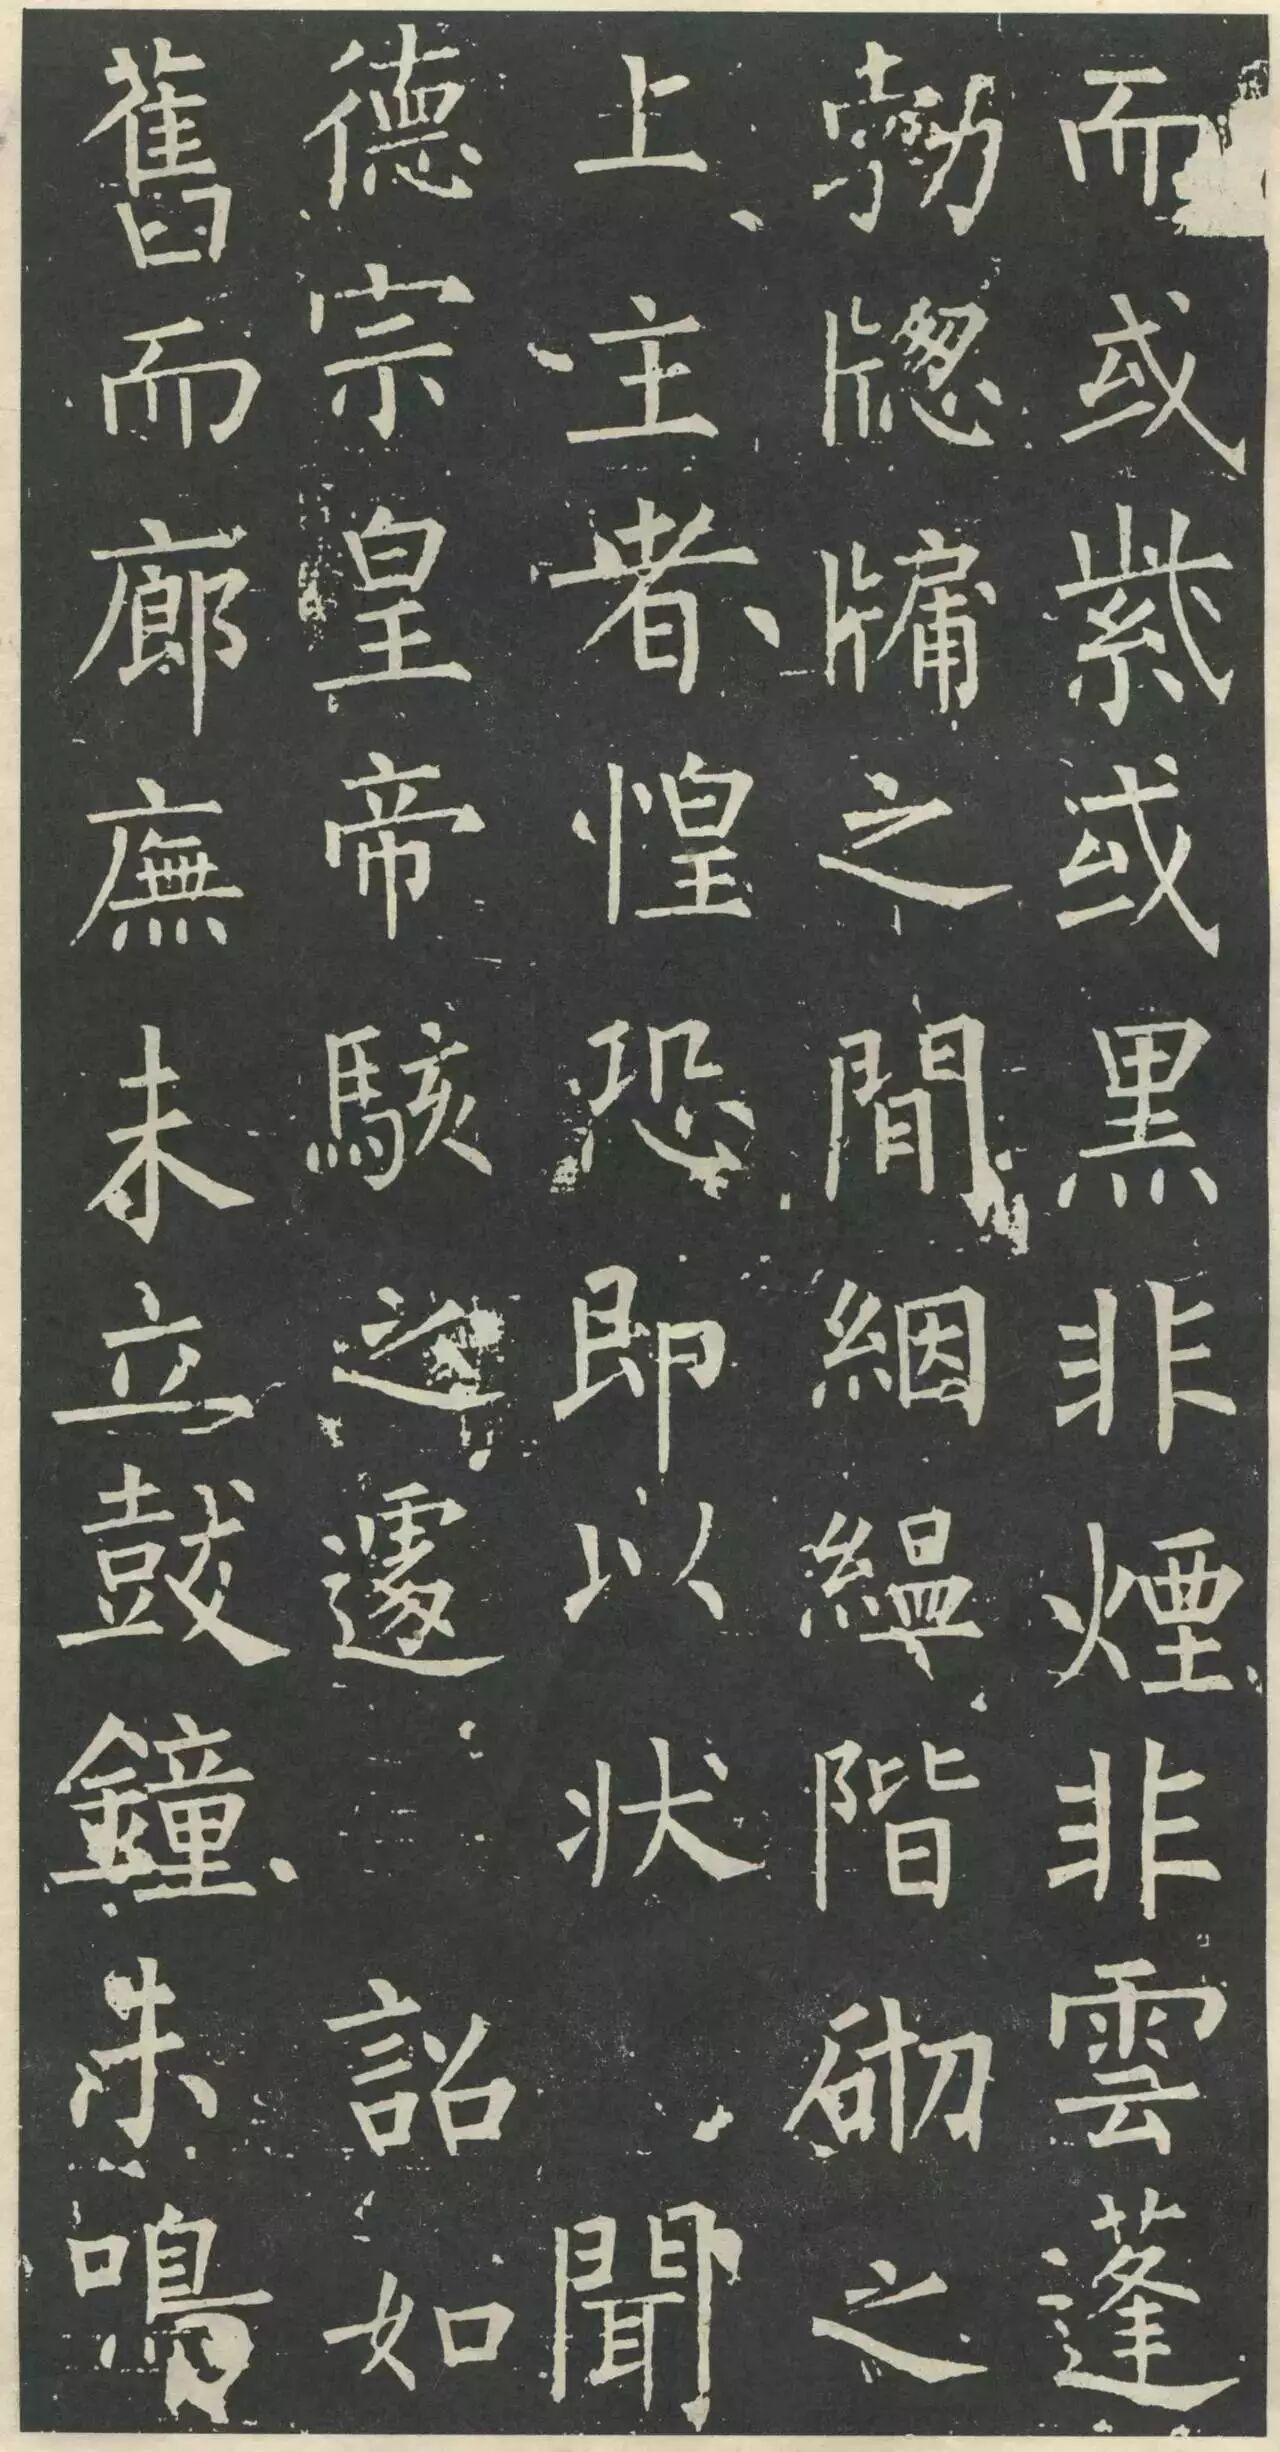 而或紫或黑非煙非雲蓬
勃牎牗之間絪緼階砌之
上主者惶恐即以狀聞
德宗皇帝駭之遽詔如
舊而廊廡未立鼓鐘未鳴